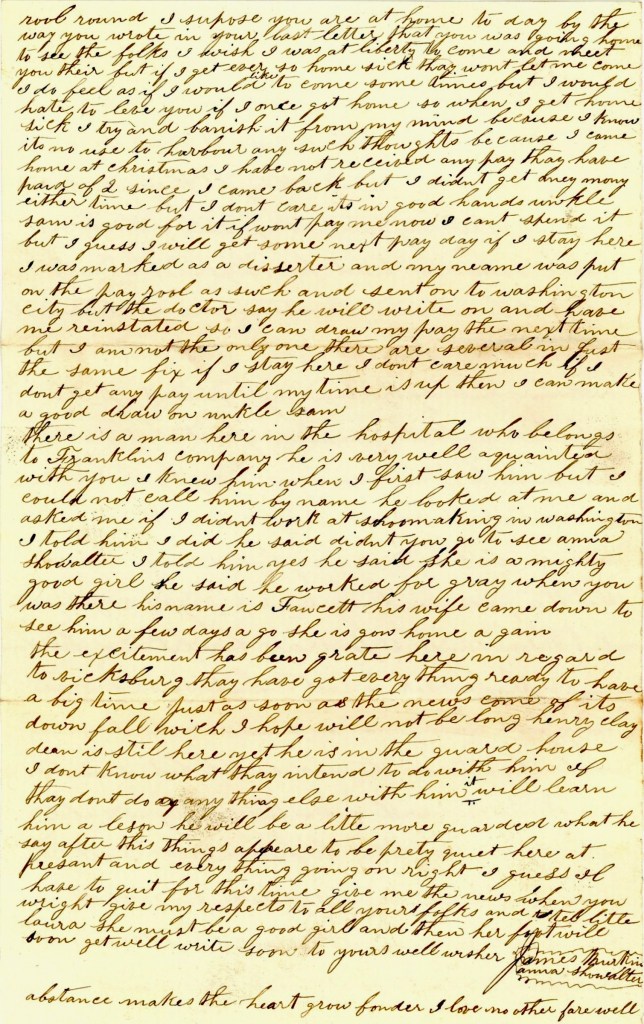 rool round I supose you are at home to day by the
way you wrote in your last letter that you was going home
to see the folks I wish I was at liberty to come and meet
you their but if I get ever so home sick thay wont let me come
I do feel as if I would like to come some times but I would
hate to leve you if I once got home so when I get home
sick I try and banish it from my mind because I know
its no use to harbour any such thoughts because I came
home at christmas I have not received any pay thay have
payd of 2 since I came back but I didnt get aney mony
either time but I dont care its in good hands unkle
sam is good for it if wont pay me now I cant spend it
but I guess I will get some next pay day if I stay here
I was marked as a disserter and my neame was put
on the pay rool as such and sent on to washington
city but the doctor say he will write on and have
me reinstated so I can draw my pay the next time
but I am not the only one there are several in Just
the same fix if I stay here I dont care much if I
dont get any pay until my time is up then I can make
a good draw on unkle sam
there is a man here in the hospital who belongs
to Franklins company he is very well aquainted
with you I knew him when I first saw him but I
could not call him by name he looked at me and
asked me if I didnt work at shoomaking in washington
I told him I did he said didnt you go to see anna
showalter I told him yes he said she is a mighty
good girl he said he worked for gray when you
was there his name is Fawcett his wife came down to
see him a few days a go she is gon home a gain
the excitement has been grate here in regard
to vicksburg thay have got every thing ready to have
a big time Just as soon as the news come of its
down fall wich I hope will not be long henry clay
dean is stil here yet he is in the guard house
I dont know what thay intend to do with him if
thay dont do any thing else with him it will learn
him a leson he will be a litle more guarded what he
say after this things appeare to be prety quiet here at
presant and every thing going on right I guess Il
have to quit for this time give me the news when you
wright give my respects to all yours folks and tel little
laura she must be a good girl and then her foot will
soon get well write soon to yours well wisher James Durkin
anna showalter
abstance makes the heart grow fonder I love no other fare well